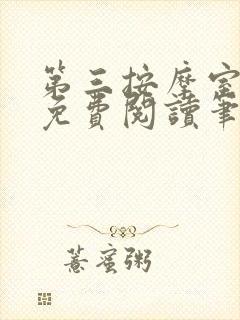 第三按摩室
免費閱讀筆
薏蜜粥